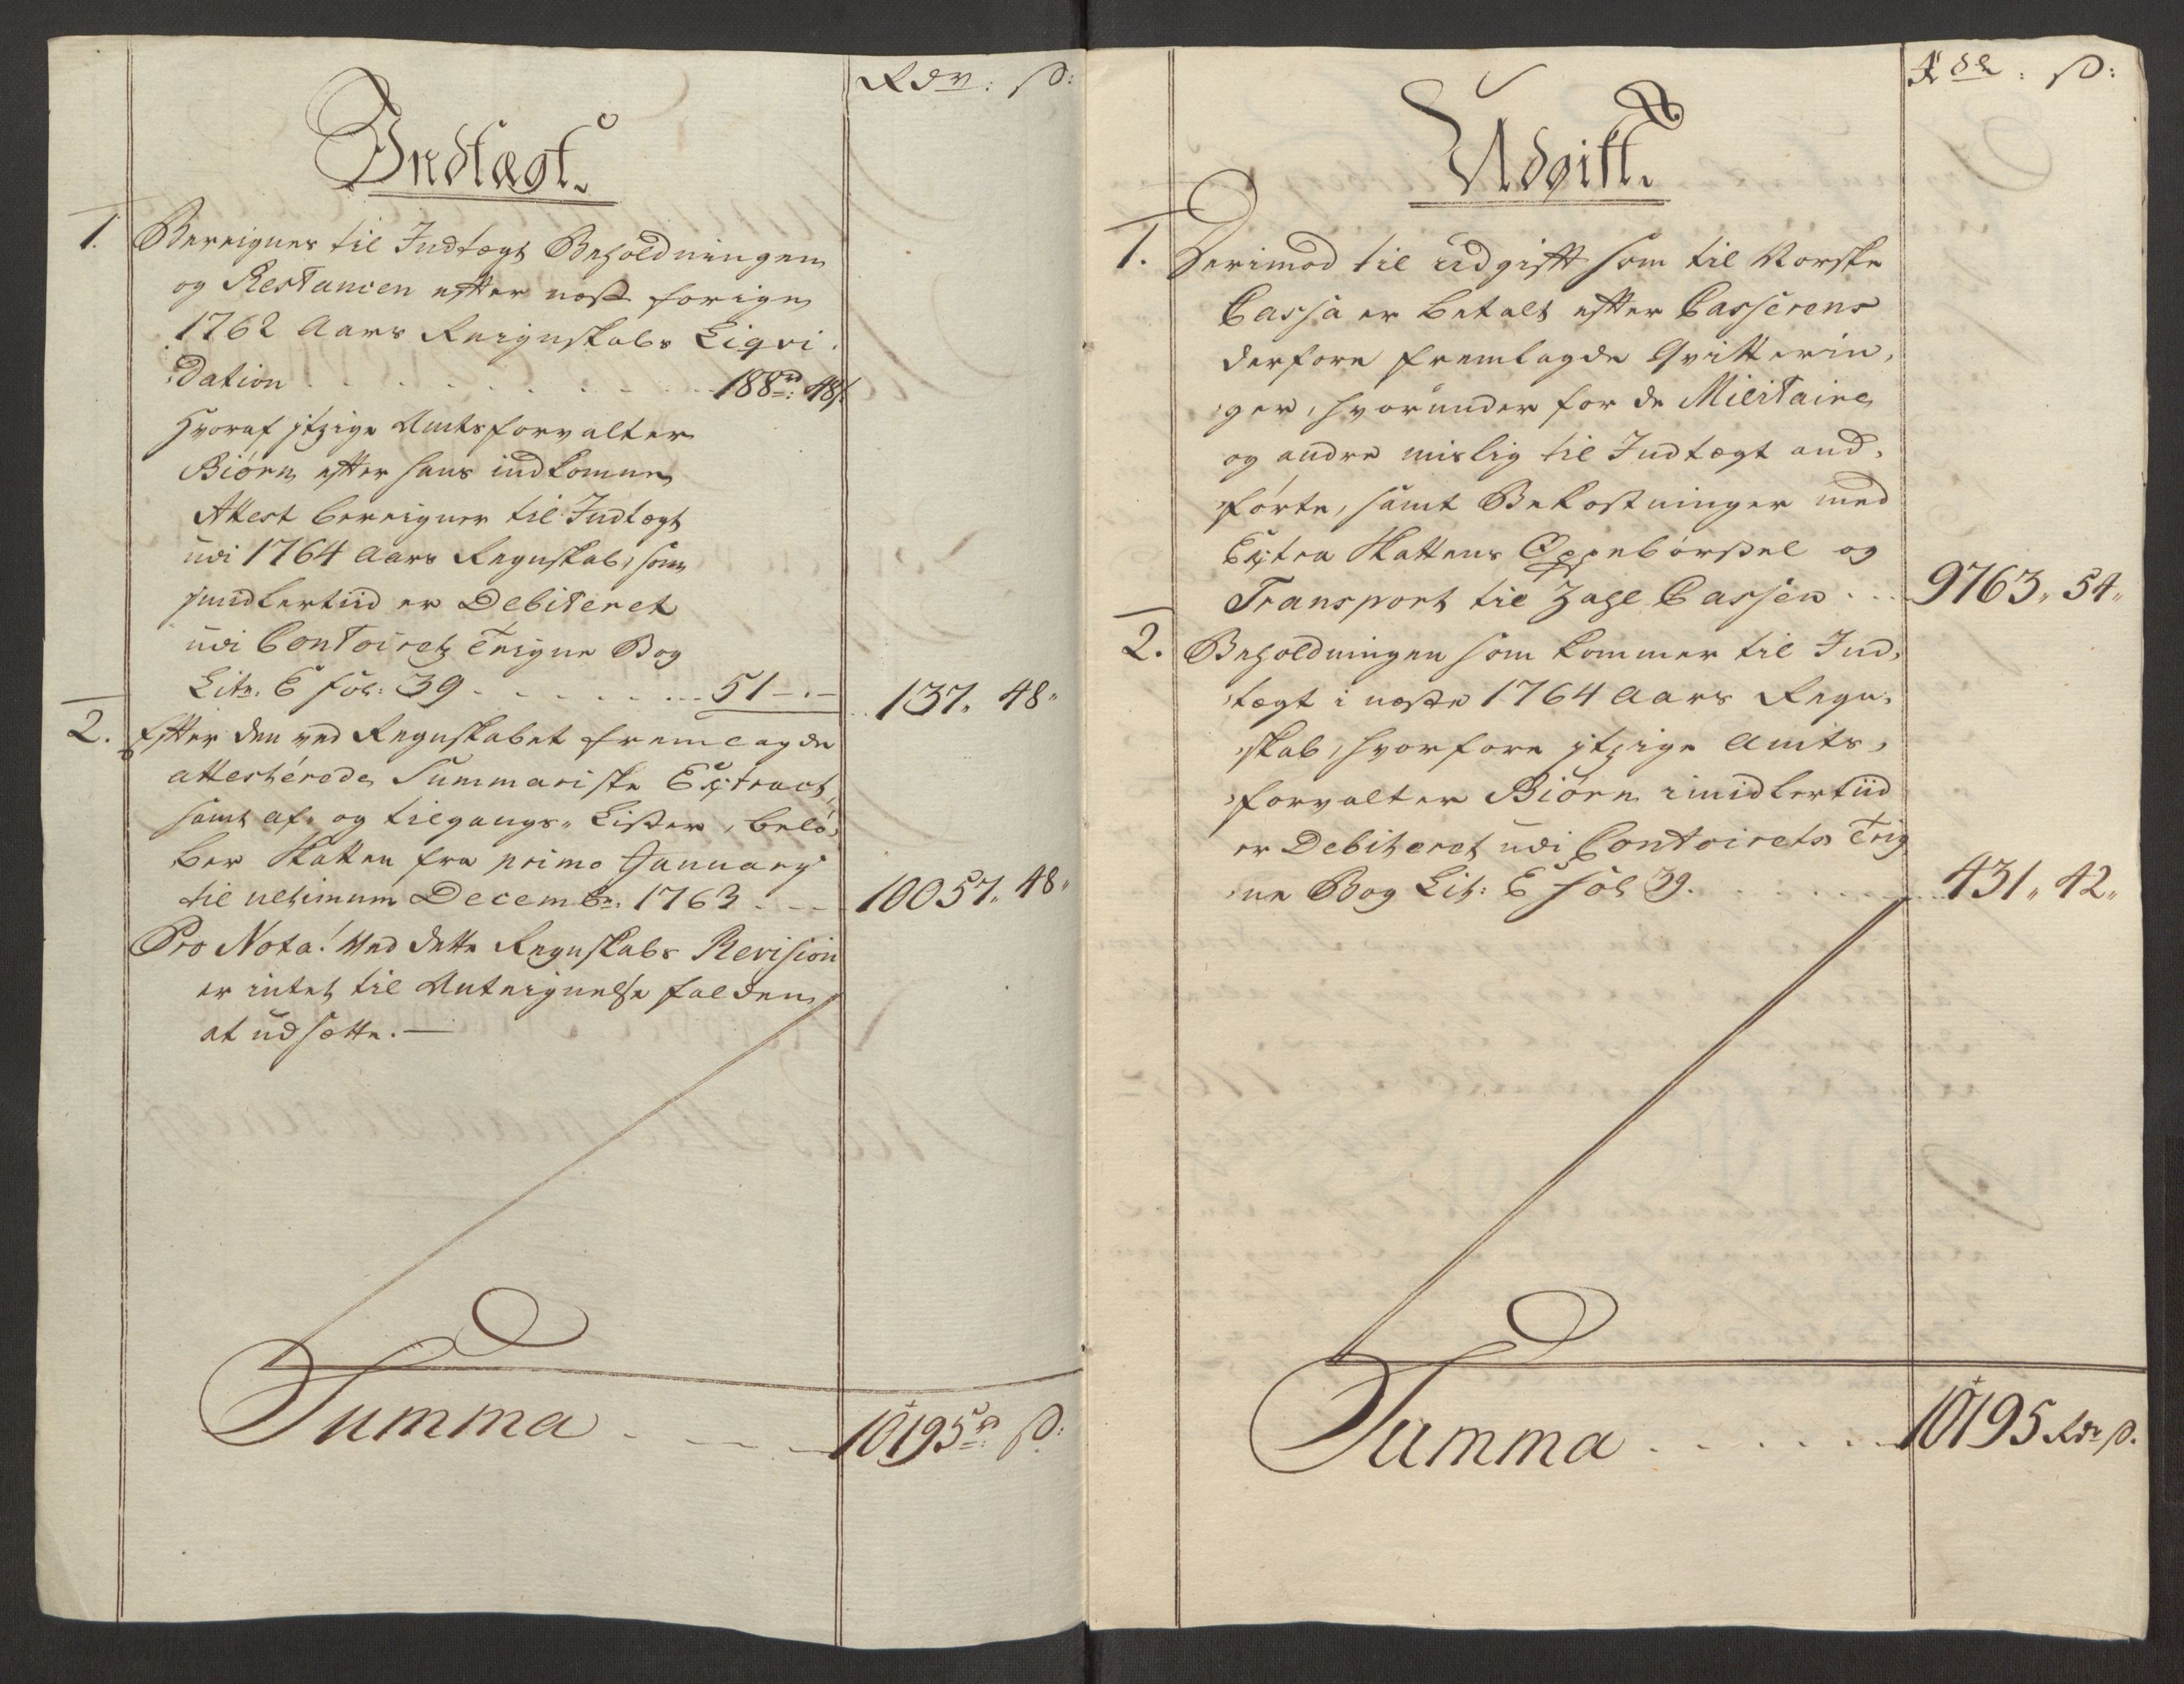 Rdr: ß:
Indtægt.
1. Bereignes til Indtægt Beholdningen
og Restancen efter næst forige
1762 Aars Reignskabs Liqvi-
dation . . . . . . . . 188rd: 48ß
Hvoraf itzige Amtsforvalter
Biørn efter hans indkomne
Attest bereigner til Indtægt
udi 1764 Aars Regnskab, som
imidlertiid er Debiteret
udi Contoirets Teigne Bog
Litr. E fol: 39 . . . . . . 51 - . -
137. 48.
2. Efter den ved Regnskabet fremlagde
attesterede Summariske Extract,
samt af- og tilgangs-Lister, belø-
ber Skatten fra primo January
til ultimum Decembr. 1763 . - -
10057. 48.
Pro Nota! Ved dette Regnskabs Revision
er intet til Anteignelse falden
at udsætte. -
Summa . - - -
10195rd: ß:
Rdr: ß:
Udgift.
1. Derimod til Udgift som til Norske
Cassa er betalt efter Casserens
derfore fremlagde Qvitterin-
ger, hvorunder for de Militaire
og andre mislig til Indtægt an-
førte, samt Bekostninger med
Extra Skattens Oppebørsel og
Transport til Zahl Cassen . . .
9763. 54.
2. Beholdningen som kommer til Ind-
tægt i næste 1764 Aars Regn-
skab, hvorfore itzige Amts-
forvalter Biørn imidlertiid
er Debiteret udi Contoirets Teig
ne Bog Lit: E fol 39. . . . . . .
431. 42.
Summa . . . . . .
10195 Rdr ß.